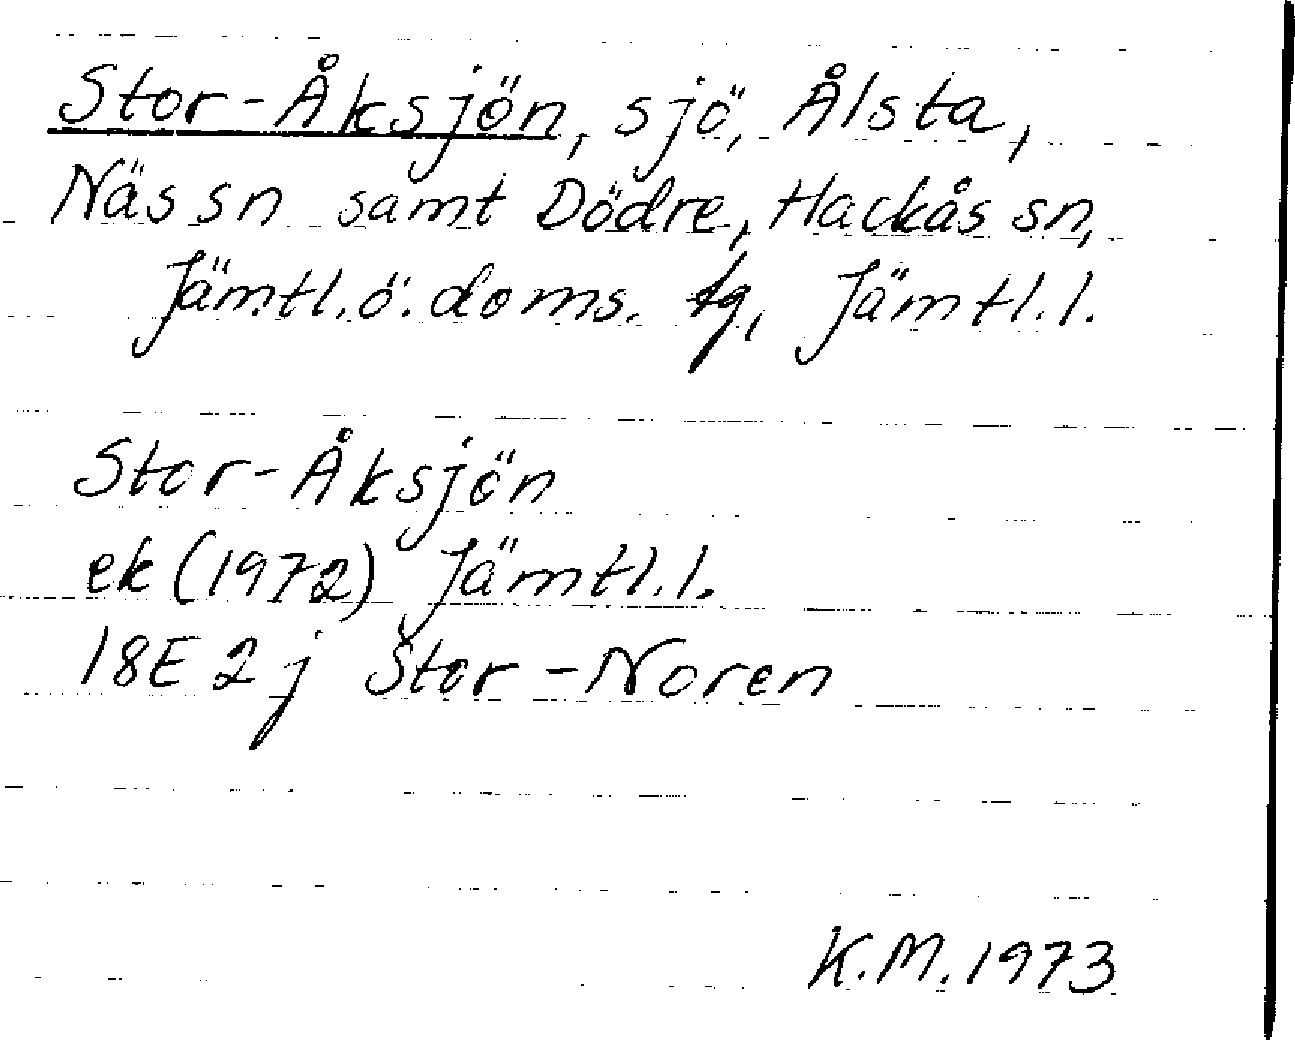 Stor-Åksjön, sjö, Ålsta,
Näs sn samt Dödre, Hackås sn,
Jämtl.ö.doms. tg, Jämtl.l.
Stor-Åksjön
ek (1972) Jämtl.l.
18E 2j Stor-Noren
K.M. 1973